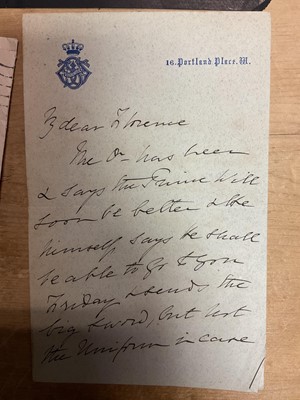 16. Portland Place. W.
My dear Florence
The Dr has been
& says the Prince will
soon be better & he
himself says he shall
be able to go to you
Friday & sends the
big sword, but not
the Uniform in case